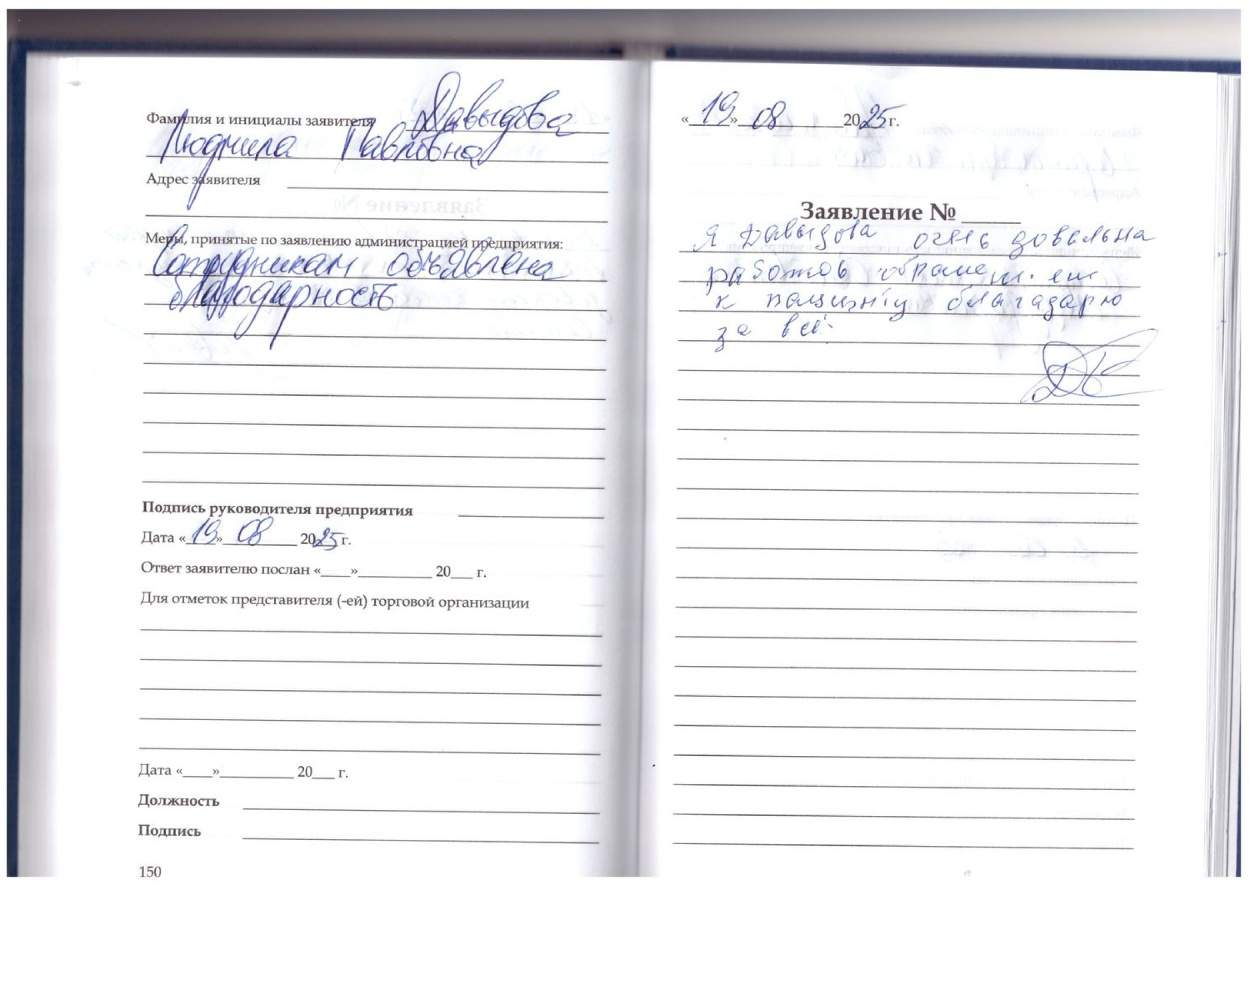 Фамилия и инициалы заявителя Давыдова
Людмила Павловна
Адрес заявителя
Меры, принятые по заявлению администрацией предприятия:
Сотрудникам объявлена
благодарность
Подпись руководителя предприятия
Дата «19» 08 2025 г.
Ответ заявителю послан «____»__________ 20___ г.
Для отметок представителя (-ей) торговой организации
Дата «____»__________ 20___ г.
Должность
Подпись
150
«19» 08 2025 г.
Заявление № _____
Я Давыдова очень довольна
работов
к пациэнту благадарю
за всё.